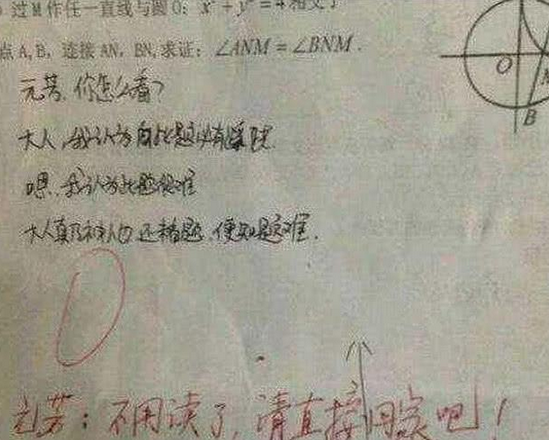 过M作任一直线与圆O: x² + y² = 4相交于
点A, B, 连接AN, BN, 求证: ∠ANM = ∠BNM.
O
B
元芳, 你怎么看?
大人, 我认为此题必有蹊跷.
嗯, 我认为此题很难
大人真乃神人也, 还 题, 便知题难.
0
元芳: 不用读了, 请直接回家吧!